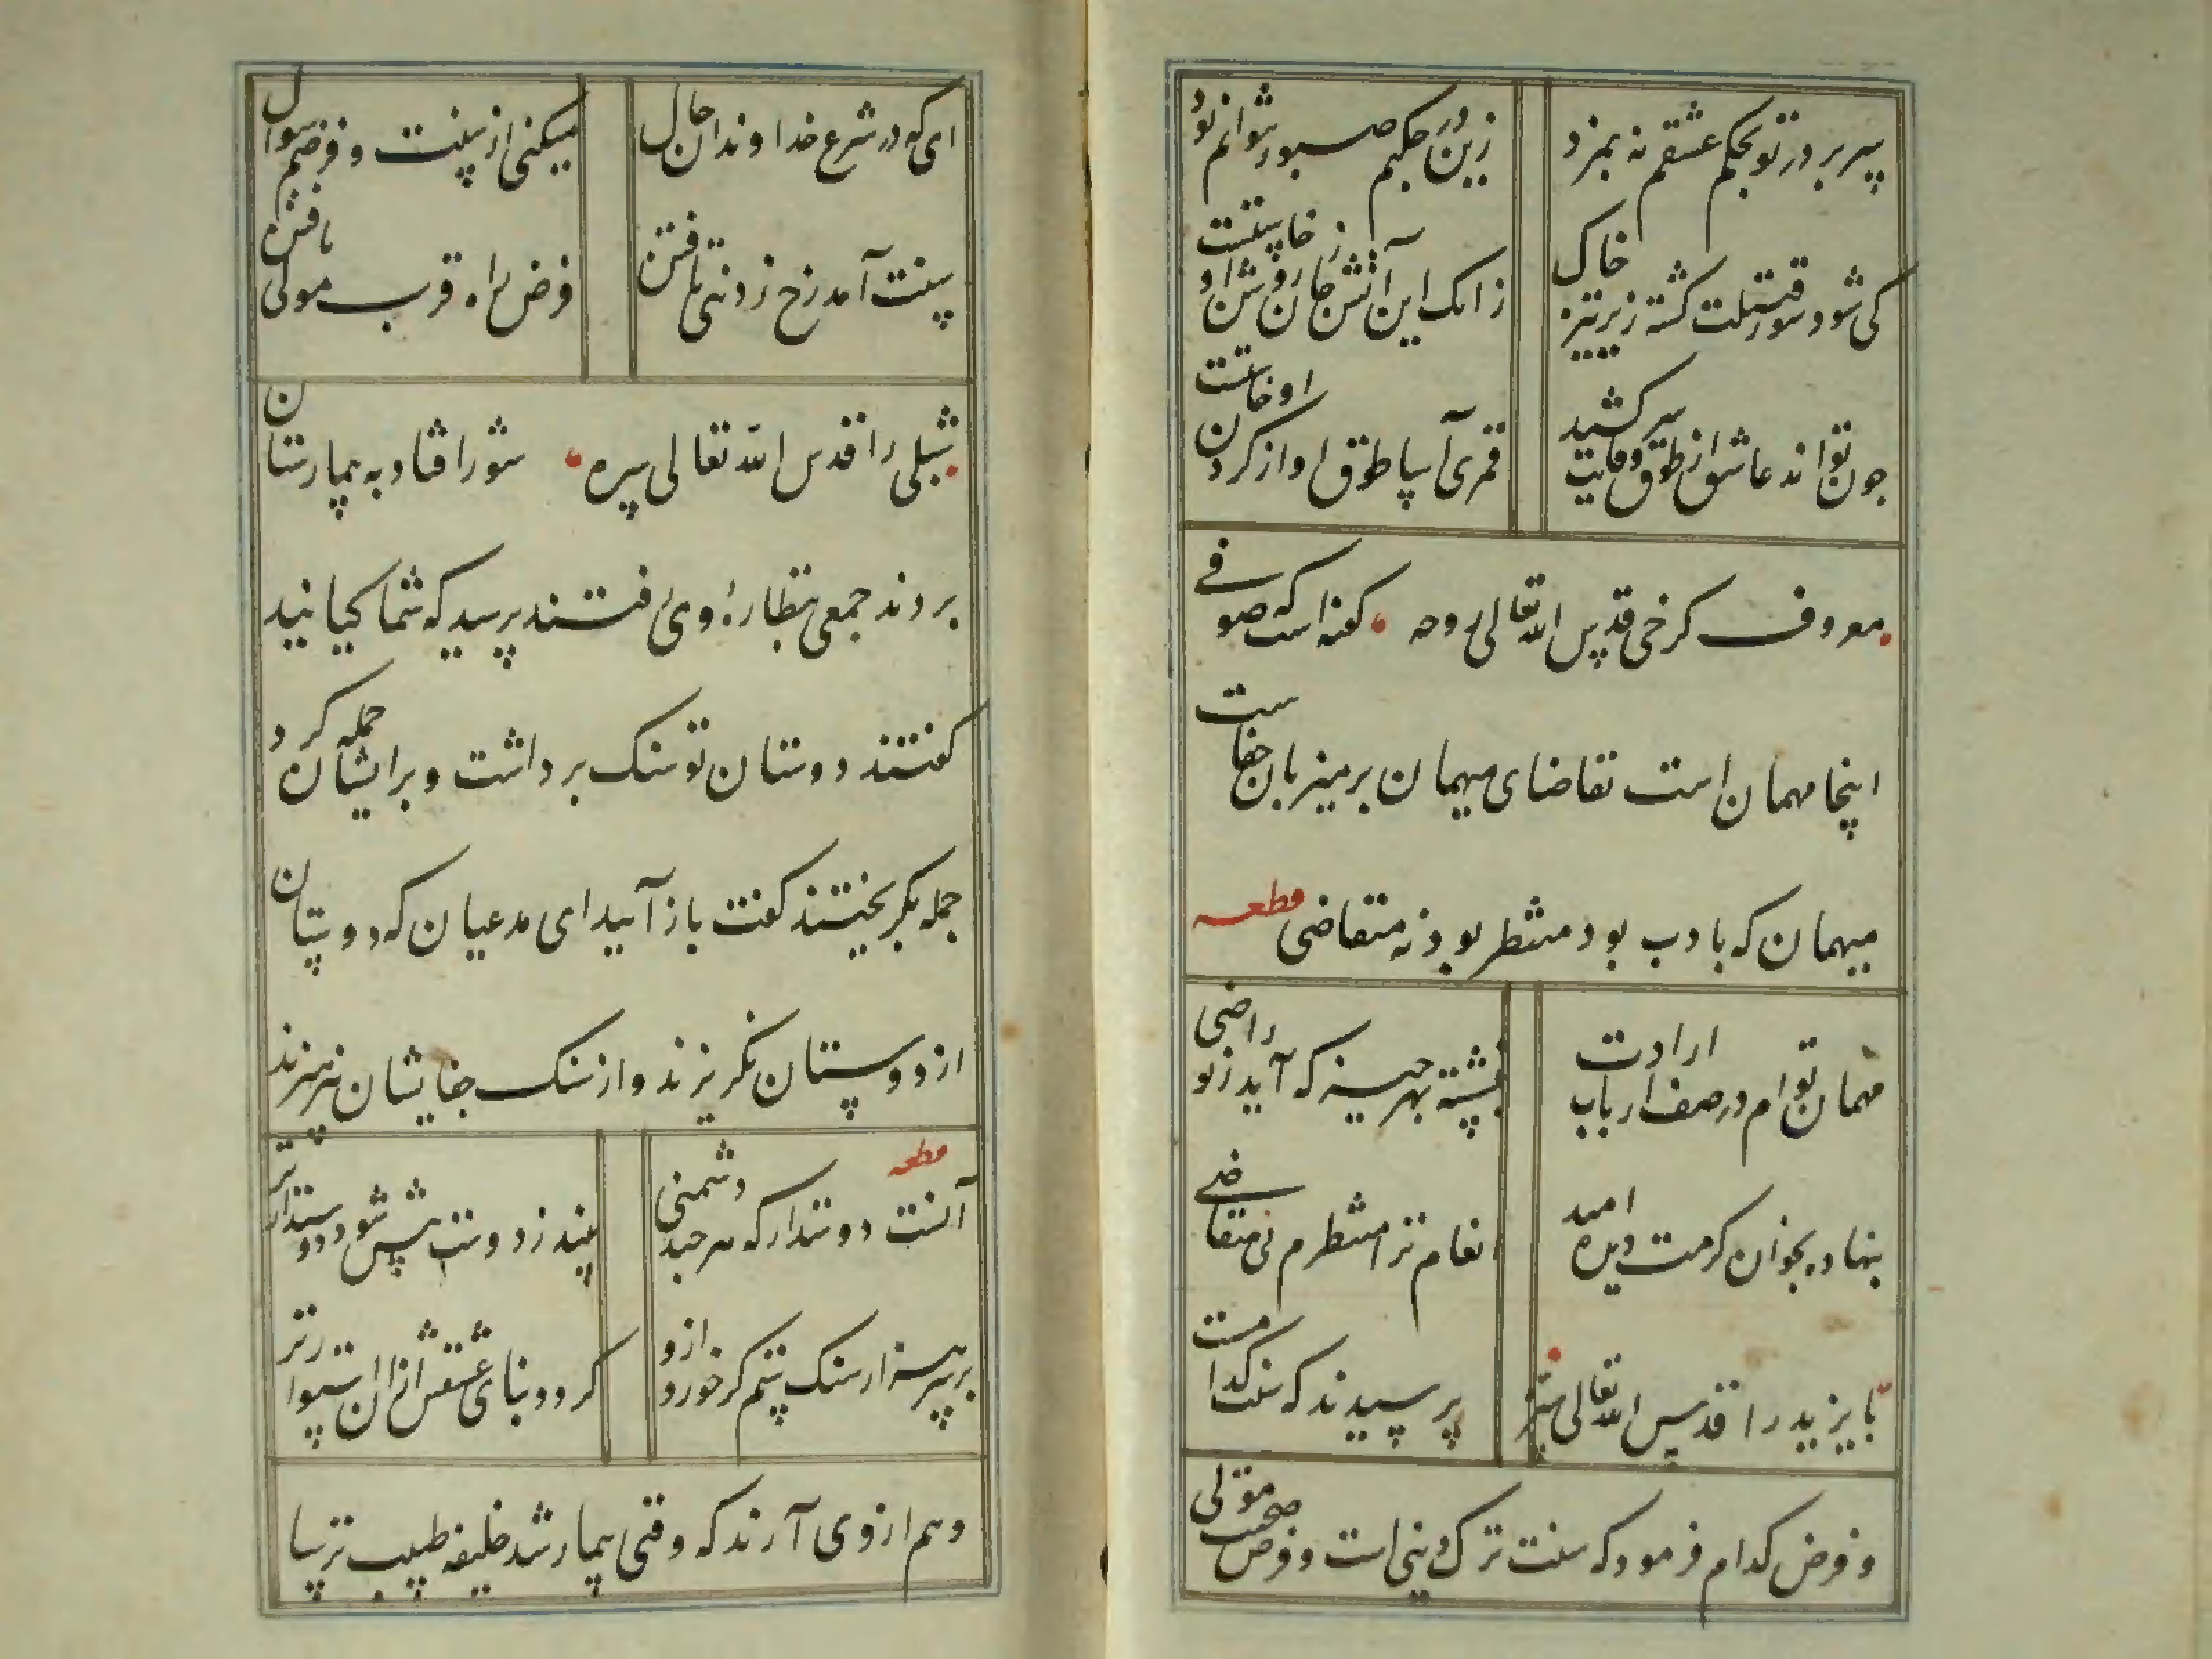 پیر بر در تو بحکم عشقم نه بمزد زین در بحکم صبور نتوانم بود
کی شود شور قتیلت کشته زیر تیره خاک زانک این آتش ز جان روشن او خاستست
چون تواند عاشق از طوق وفایت سر کشید قمری آسا طوق او از گردن او خاستست
معروف کرخی قدس الله تعالی روحه گفته است که صوفی
اینجا مهمان است تقاضای میهمان بر میزبان جفاست
میهمان که باادب بود منتظر بود نه متقاضی قطعه
مهمان توام در صف ارباب ارادت بنشسته بهر چیز که آید ز تو راضی
بنهاده بخوان کرمت دیده امید انعام ترا منتظرم نی متقاضی
بایزید را قدس الله تعالی سره پرسیدند که سنت کدامست
و فرض کدام فرمود که سنت ترک دنیی است و فرض صحبت مولی
ای که در شرع خداوندان حال میکنی از سنت و فرضم سوال
سنت آمد رخ ز دنیی تافتن فرض راه قرب مولی یافتن
شبلی را قدس الله تعالی سره شور افتاد به بیمارستان
بردند جمعی بنظاره وی رفتند پرسید که شما کیانید
گفتند دوستان تو سنک برداشت و بر ایشان حمله کرد
جمله بگریختند گفت باز آیید ای مدعیان که دوستان
از دوستان نگریزند و از سنک جفایشان نپرهیزند
قطعه
آنست دوستدار که هر چند دشمنی بیند ز دوست بیش شود دوستدارتر
بر سر هزار سنک ستم گر خورد ازو گردد بنای عشقش ازان استوارتر
و هم از وی آرند که وقتی بیمار شد خلیفه طبیب ترسا